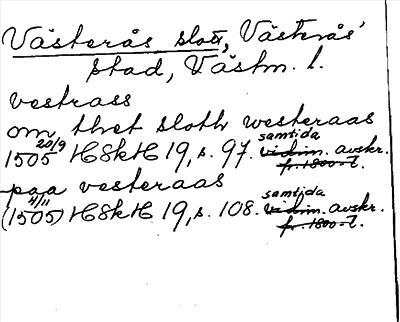 Västerås slott, Västerås'
stad, Västm. l.
vestrass
om thet sloth westeraas
1505 20/9 HSkH 19, s. 97. samtida vidim. avskr.
fr. 1800-t.
paa vesteraas
(1505) 4/11 HSkH 19, s. 108. samtida vidim. avskr.
fr. 1800-t.